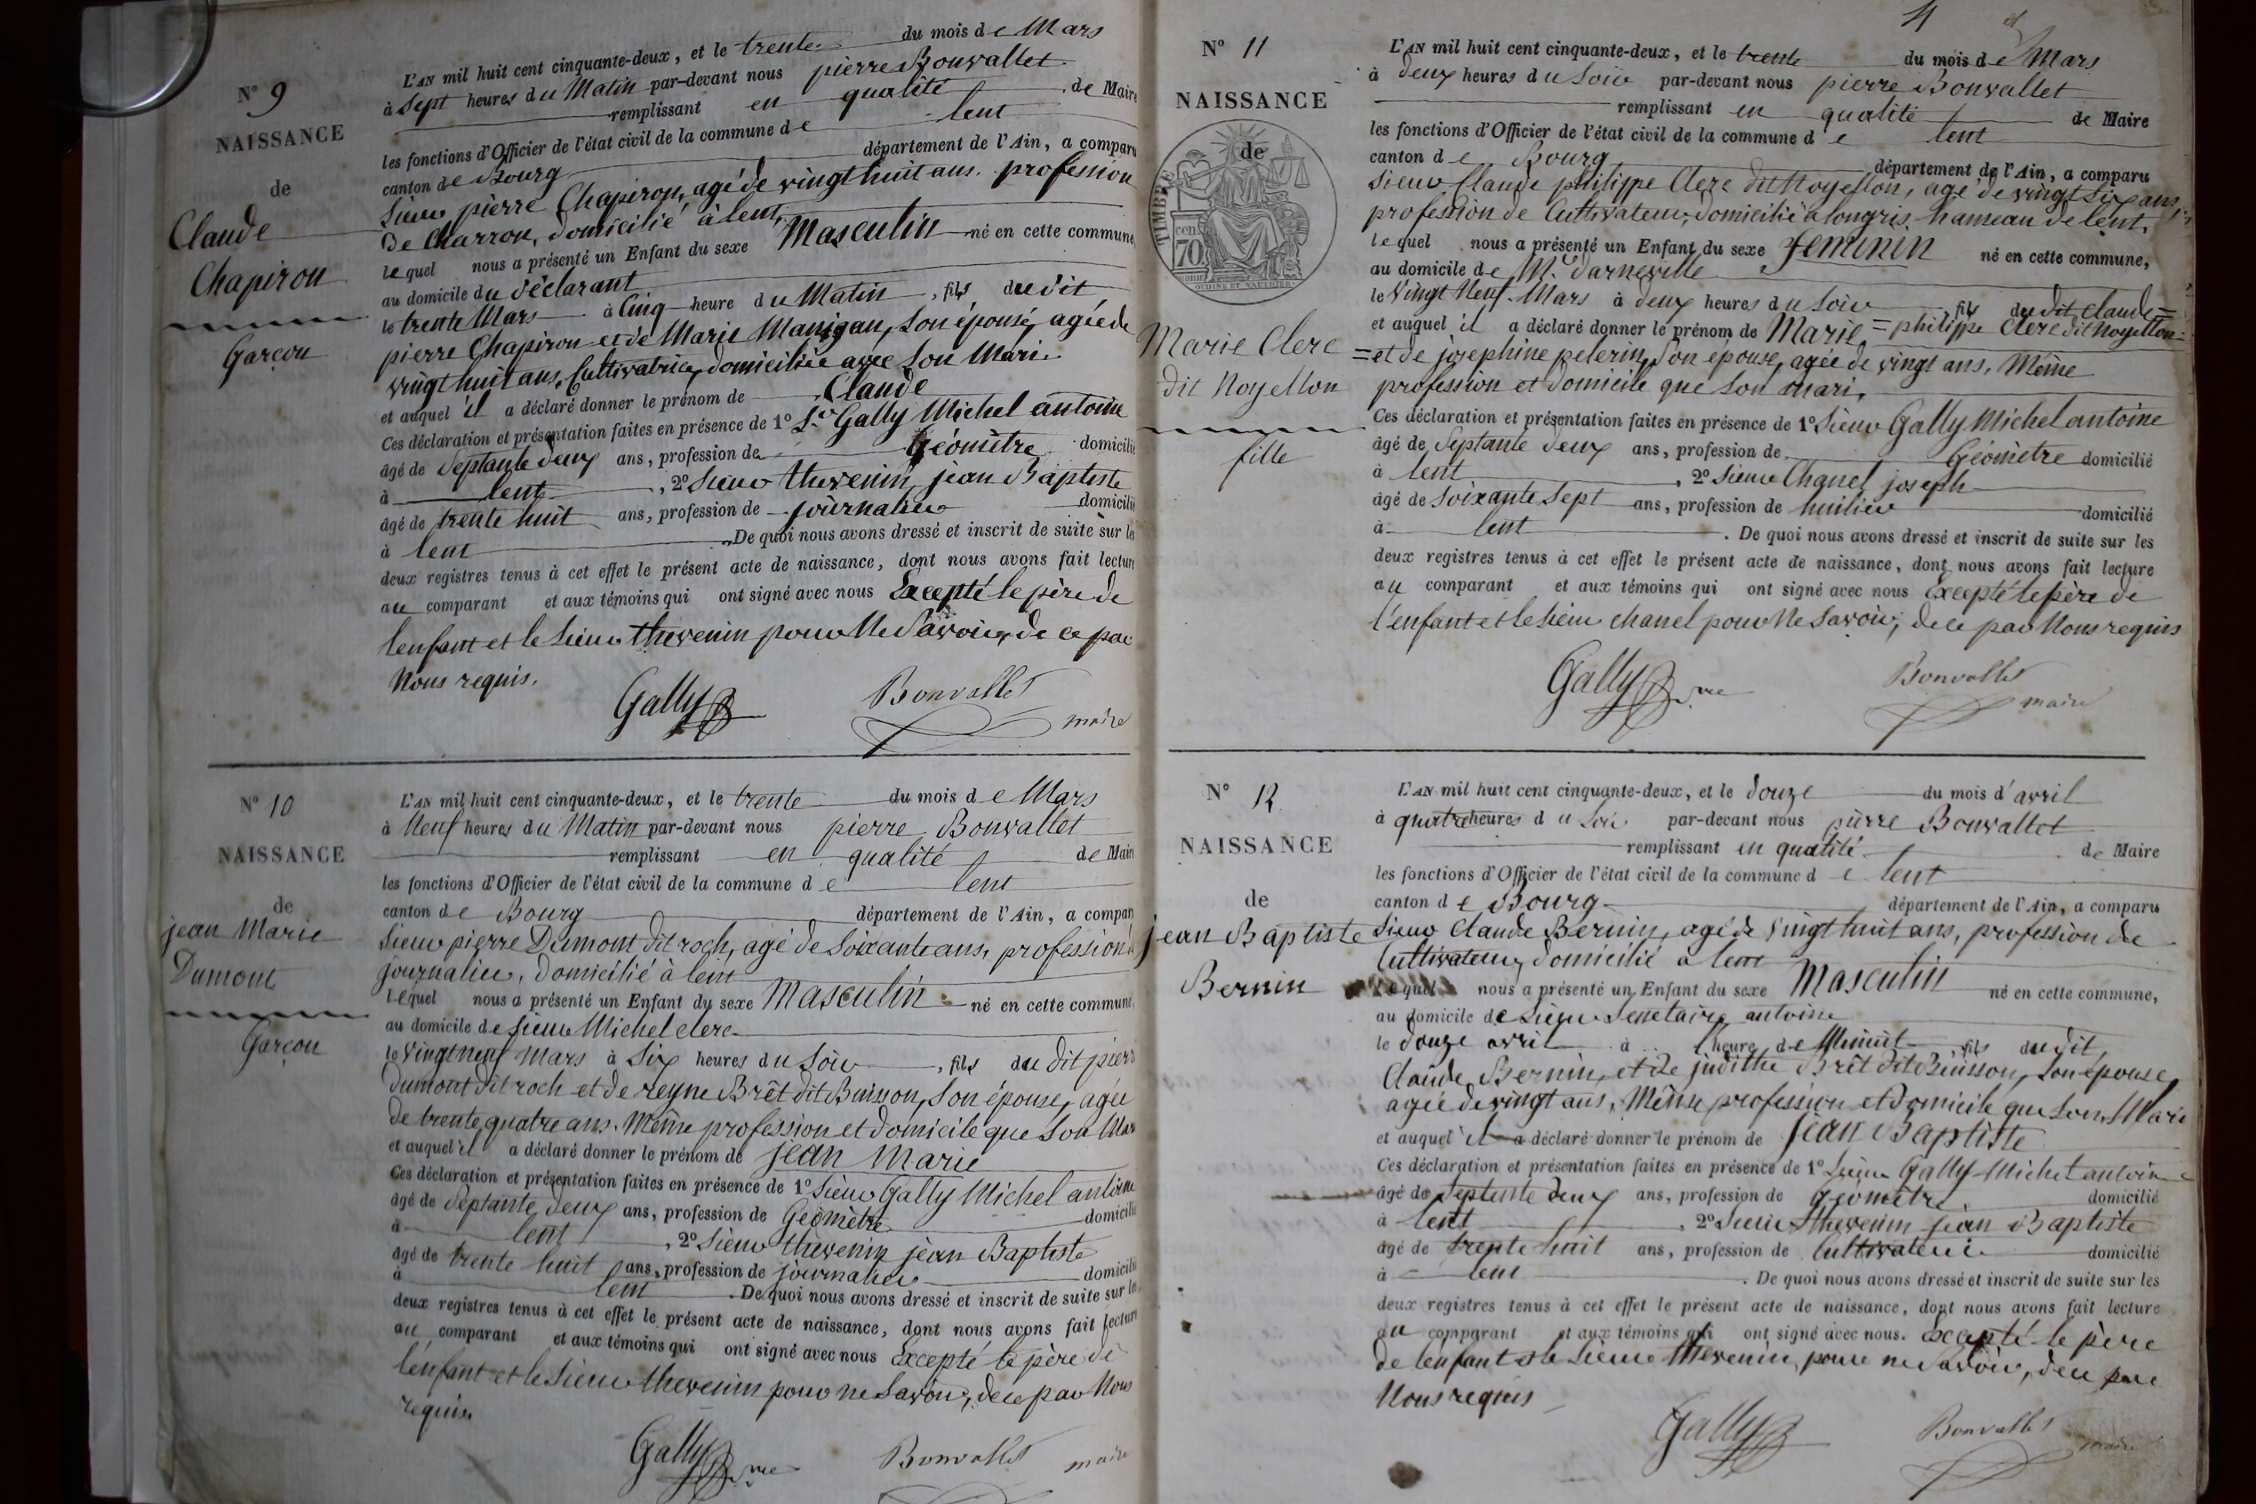 N° 9
NAISSANCE
de
Claude
Chapiron
Garçon
L'AN mil huit cent cinquante-deux, et le trente du mois de Mars
à Sept heures du Matin par-devant nous pierre Bonvallet
remplissant en qualité de Maire
les fonctions d'Officier de l'état civil de la commune de lent
canton de Bourg département de l'Ain, a comparu
Sieur pierre Chapiron, agé de vingt huit ans. profession
De Charron, domicilié à lent,
lequel nous a présenté un Enfant du sexe Masculin né en cette commune,
au domicile du déclarant
le trente Mars à Cinq heure du Matin, fils du dit
pierre Chapiron et de Marie Manigan, son épouse, agée de
vingt huit ans, Cultivatrice, domiciliée avec Son Mari.
et auquel il a déclaré donner le prénom de Claude
Ces déclaration et présentation faites en présence de 1° Sr Gally Michel antoine
âgé de Septante deux ans, profession de Géomètre domicilié
à lent, 2° Sieur thevenin jean Baptiste
âgé de trente huit ans, profession de journalier domicilié
à lent. De quoi nous avons dressé et inscrit de suite sur les
deux registres tenus à cet effet le présent acte de naissance, dont nous avons fait lecture
au comparant et aux témoins qui ont signé avec nous Excepté le père de
lenfant et le Sieur thevenin pour Ne Savoir, de ce par
Nous requis.
Gally Bonvallet
maire
N° 10
NAISSANCE
de
jean Marie
Dumont
Garçon
L'AN mil huit cent cinquante-deux, et le trente du mois de Mars
à Neuf heures du Matin par-devant nous pierre Bonvallet
remplissant en qualité de Maire
les fonctions d'Officier de l'état civil de la commune de lent
canton de Bourg département de l'Ain, a comparu
Sieur pierre Dumont dit roch, agé de Soixante ans, profession de
journalier, domicilié à lent
lequel nous a présenté un Enfant du sexe Masculin né en cette commune,
au domicile de Sieur Michel clerc
le vingt neuf Mars à Six heures du Soir, fils du dit pierre
dumont dit roch et de reyne Brêt dit Buisson, Son épouse, agée
de trente quatre ans. Même profession et domicile que Son Mari
et auquel il a déclaré donner le prénom de jean Marie
Ces déclaration et présentation faites en présence de 1° Sieur Gally Michel antoine
âgé de Septante deux ans, profession de Géomètre domicilié
à lent, 2° Sieur thevenin jean Baptiste
âgé de trente huit ans, profession de journalier domicilié
à lent. De quoi nous avons dressé et inscrit de suite sur les
deux registres tenus à cet effet le présent acte de naissance, dont nous avons fait lecture
au comparant et aux témoins qui ont signé avec nous Excepté le père de
l'enfant et le Sieur thevenin pour ne Savoir, de ce par Nous
requis.
Gally Bonvallet maire
4
N° 11
NAISSANCE
de
TIMBRE
70 cent
Marie Clerc
dit Noyellon
fille
L'AN mil huit cent cinquante-deux, et le trente et du mois de Mars
à deux heures du Soir par-devant nous pierre Bonvallet
remplissant en qualité de Maire
les fonctions d'Officier de l'état civil de la commune de lent
canton de Bourg département de l'Ain, a comparu
Sieur Claude philippe Clerc dit Noyellon, agé de vingt Six ans,
profession de Cultivateur, domicilié a longris hameau de lent.
lequel nous a présenté un Enfant du sexe feminin né en cette commune,
au domicile de Mr. darneville
le Vingt Neuf Mars à deux heures du Soir, fils du dit claude =
et auquel il a déclaré donner le prénom de Marie = philippe Clerc dit Noyellon =
= et de josephine pelerin, Son épouse, agée de vingt ans. Même
profession et domicile que Son mari.
Ces déclaration et présentation faites en présence de 1° Sieur Gally Michel antoine
âgé de Septante deux ans, profession de Géomètre domicilié
à lent, 2° Sieur Chanel joseph
âgé de Soixante Sept ans, profession de huilier domicilié
à lent. De quoi nous avons dressé et inscrit de suite sur les
deux registres tenus à cet effet le présent acte de naissance, dont nous avons fait lecture
au comparant et aux témoins qui ont signé avec nous Excepté le père de
l'enfant et le Sieur chanel pour Ne Savoir, de ce par Nous requis
Gally Bonvallet
maire
N° 12
NAISSANCE
de
jean Baptiste
Bernin
L'AN mil huit cent cinquante-deux, et le douze du mois d'avril
à quatre heures du Soir par-devant nous pierre Bonvallet
remplissant en qualité de Maire
les fonctions d'Officier de l'état civil de la commune de lent
canton de Bourg département de l'Ain, a comparu
Sieur Claude Bernin, agé de Vingt huit ans, profession de
Cultivateur, domicilié a lent
lequel nous a présenté un Enfant du sexe Masculin né en cette commune,
au domicile de Sieur Senetaire antoine
le douze avril à heure de Minuit, fils du dit
Claude Bernin, et de judithe Brêt dit Buisson, Son épouse
agée de vingt ans, Même profession et domicile que Son Mari
et auquel il a déclaré donner le prénom de jean Baptiste
Ces déclaration et présentation faites en présence de 1° Sieur Gally Michel antoine
âgé de Septante deux ans, profession de géomètre domicilié
à lent, 2° Sieur thevenin jean Baptiste
âgé de trente huit ans, profession de Cultivateur domicilié
à lent. De quoi nous avons dressé et inscrit de suite sur les
deux registres tenus à cet effet le présent acte de naissance, dont nous avons fait lecture
au comparant et aux témoins qui ont signé avec nous. Excepté le père
de lenfant et le Sieur thevenin, pour ne Savoir, de ce par
Nous requis
Gally Bonvallet
maire